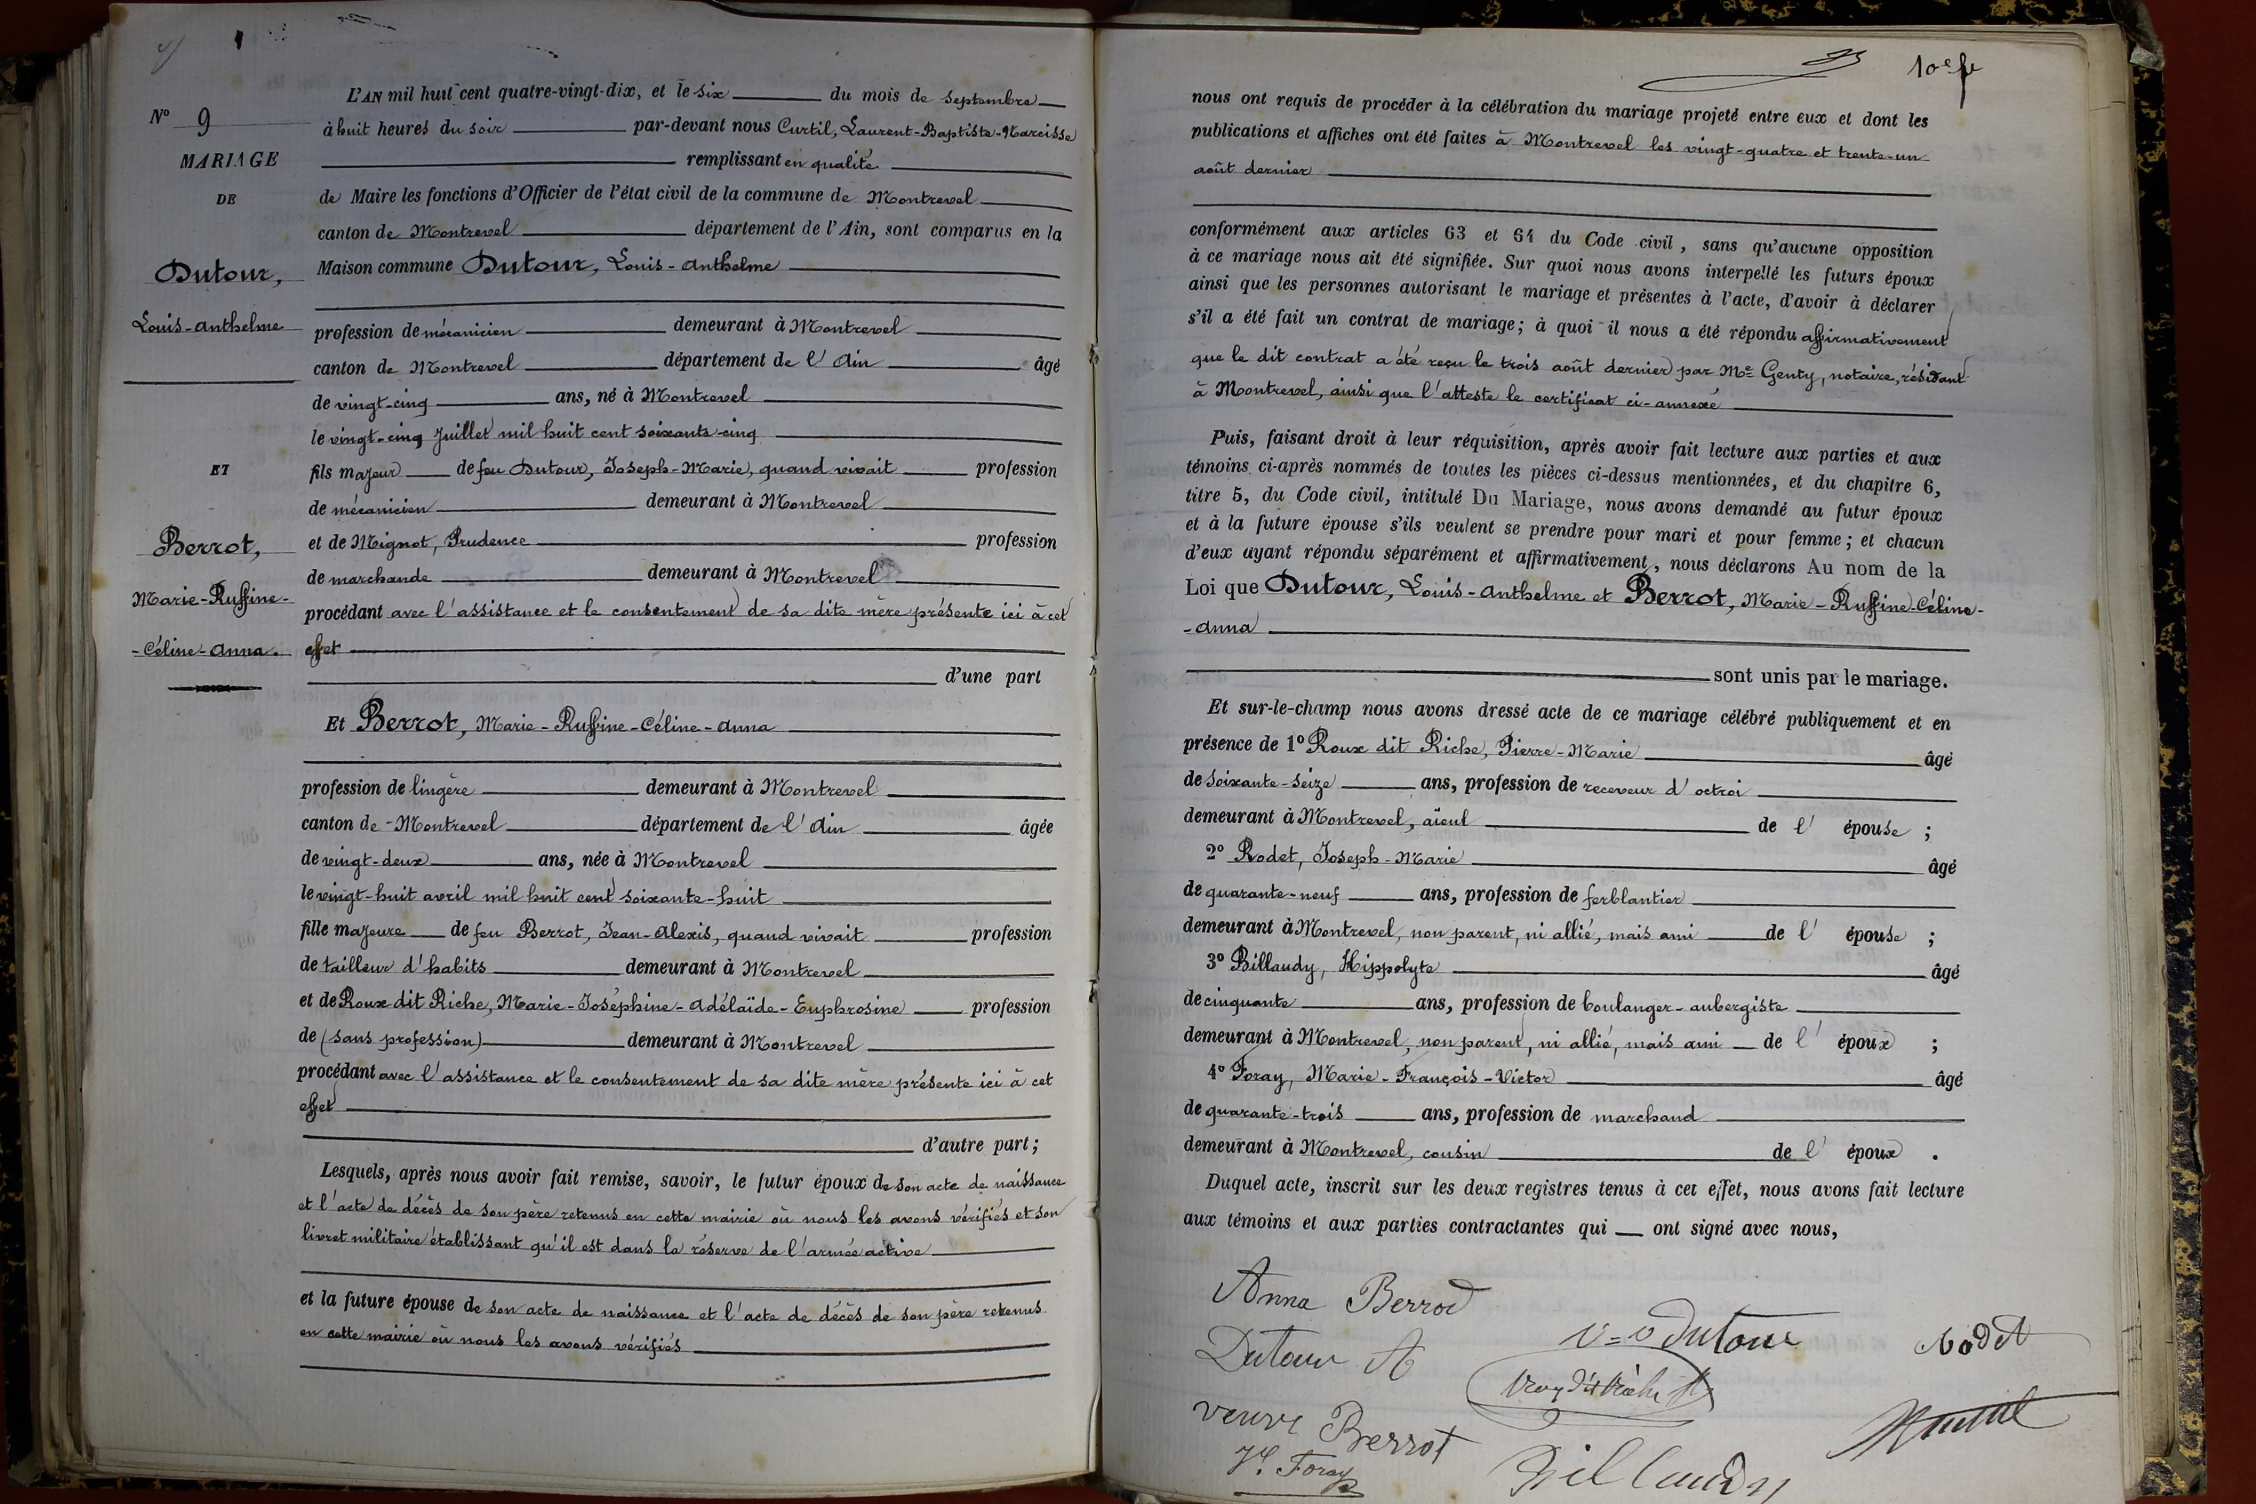 Nº 9
MARIAGE
DE
Dutour,
Louis-Anthelme
ET
Berrot,
Marie-Ruffine-
-Céline-Anna.
L'AN mil huit cent quatre-vingt-dix, et le six du mois de septembre
à huit heures du soir par-devant nous Curtil, Laurent-Baptiste-Narcisse
remplissant en qualité
de Maire les fonctions d'Officier de l'état civil de la commune de Montrevel
canton de Montrevel département de l'Ain, sont comparus en la
Maison commune Dutour, Louis-Anthelme
profession de mécanicien demeurant à Montrevel
canton de Montrevel département de l'Ain âgé
de vingt-cinq ans, né à Montrevel
le vingt-cinq Juillet mil huit cent soixante-cinq
fils majeur de feu Dutour, Joseph-Marie, quand vivait profession
de mécanicien demeurant à Montrevel
et de Mignot, Prudence profession
de marchande demeurant à Montrevel
procédant avec l'assistance et le consentement de sa dite mère présente ici à cet
effet
d'une part
Et Berrot, Marie-Ruffine-Céline-Anna
profession de lingère demeurant à Montrevel
canton de Montrevel département de l'Ain âgée
de vingt-deux ans, née à Montrevel
le vingt-huit avril mil huit cent soixante-huit
fille majeure de feu Berrot, Jean-Alexis, quand vivait profession
de tailleur d'habits demeurant à Montrevel
et de Roux dit Riche, Marie-Joséphine-Adélaïde-Euphrosine profession
de (sans profession) demeurant à Montrevel
procédant avec l'assistance et le consentement de sa dite mère présente ici à cet
effet
d'autre part;
Lesquels, après nous avoir fait remise, savoir, le futur époux de son acte de naissance
et l'acte de décès de son père retenus en cette mairie où nous les avons vérifiés et son
livret militaire établissant qu'il est dans la réserve de l'armée active
et la future épouse de son acte de naissance et l'acte de décès de son père retenus
en cette mairie où nous les avons vérifiés
nous ont requis de procéder à la célébration du mariage projeté entre eux et dont les
publications et affiches ont été faites à Montrevel les vingt-quatre et trente-un
août dernier
conformément aux articles 63 et 64 du Code civil, sans qu'aucune opposition
à ce mariage nous ait été signifiée. Sur quoi nous avons interpellé les futurs époux
ainsi que les personnes autorisant le mariage et présentes à l'acte, d'avoir à déclarer
s'il a été fait un contrat de mariage; à quoi il nous a été répondu affirmativement
que le dit contrat a été reçu le trois août dernier par Me Genty, notaire, résidant
à Montrevel, ainsi que l'atteste le certificat ci-annexé
Puis, faisant droit à leur réquisition, après avoir fait lecture aux parties et aux
témoins ci-après nommés de toutes les pièces ci-dessus mentionnées, et du chapitre 6,
titre 5, du Code civil, intitulé Du Mariage, nous avons demandé au futur époux
et à la future épouse s'ils veulent se prendre pour mari et pour femme; et chacun
d'eux ayant répondu séparément et affirmativement, nous déclarons Au nom de la
Loi que Dutour, Louis-Anthelme et Berrot, Marie-Ruffine-Céline-
-Anna
sont unis par le mariage.
Et sur-le-champ nous avons dressé acte de ce mariage célébré publiquement et en
présence de 1º Roux dit Riche, Pierre-Marie âgé
de soixante-seize ans, profession de receveur d'octroi
demeurant à Montrevel, aïeul de l'épouse;
2º Rodet, Joseph-Marie âgé
de quarante-neuf ans, profession de ferblantier
demeurant à Montrevel, non parent, ni allié, mais ami de l'épouse;
3º Billaudy, Hippolyte âgé
de cinquante ans, profession de boulanger-aubergiste
demeurant à Montrevel, non parent, ni allié, mais ami de l'époux;
4º Foray, Marie-François-Victor âgé
de quarante-trois ans, profession de marchand
demeurant à Montrevel, cousin de l'époux.
Duquel acte, inscrit sur les deux registres tenus à cet effet, nous avons fait lecture
aux témoins et aux parties contractantes qui ont signé avec nous,
Anna Berrod
Dutour A
Vve Dutour
Rodet
veuve Berrot
Foray
Billaudy